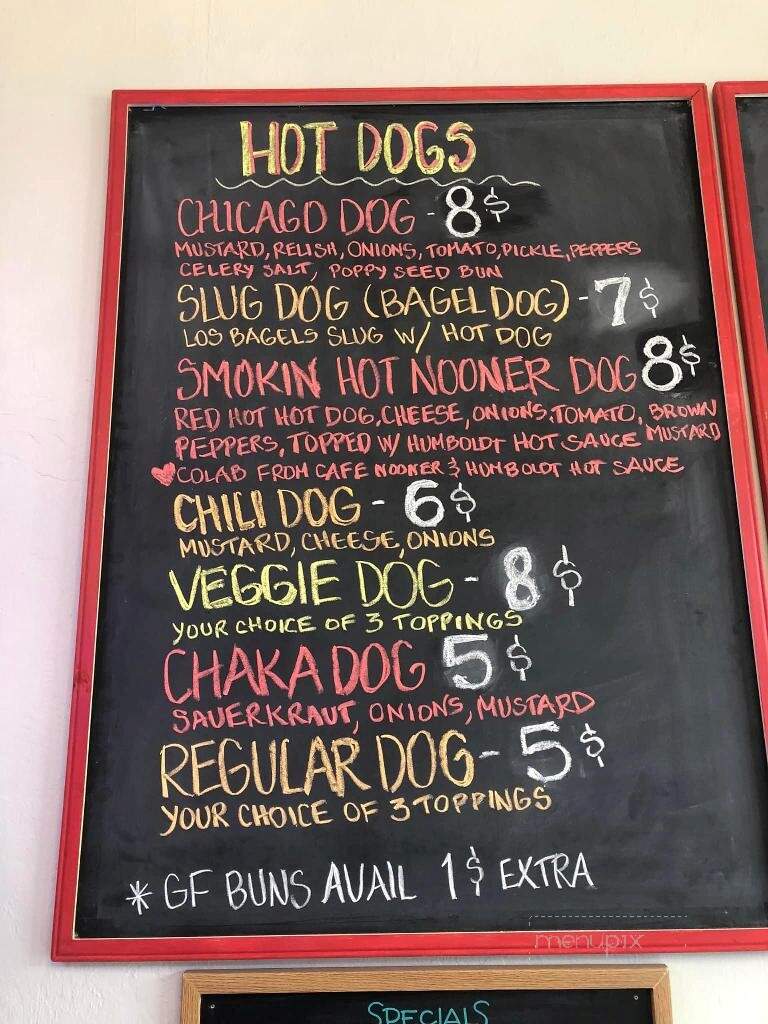 HOT DOGS
CHICAGO DOG - 8$
MUSTARD, RELISH, ONIONS, TOMATO, PICKLE, PEPPERS
CELERY SALT, POPPY SEED BUN
SLUG DOG (BAGEL DOG) - 7$
LOS BAGELS SLUG W/ HOT DOG
SMOKIN HOT NOONER DOG 8$
RED HOT HOT DOG, CHEESE, ONIONS, TOMATO, BROWN MUSTARD
PEPPERS, TOPPED W/ HUMBOLDT HOT SAUCE
COLAB FROM CAFE NOONER & HUMBOLDT HOT SAUCE
CHILI DOG - 6$
MUSTARD, CHEESE, ONIONS
VEGGIE DOG - 8$
YOUR CHOICE OF 3 TOPPINGS
CHAKA DOG 5$
SAUERKRAUT, ONIONS, MUSTARD
REGULAR DOG - 5$
YOUR CHOICE OF 3 TOPPINGS
* GF BUNS AVAIL 1$ EXTRA
menupix
SPECIALS